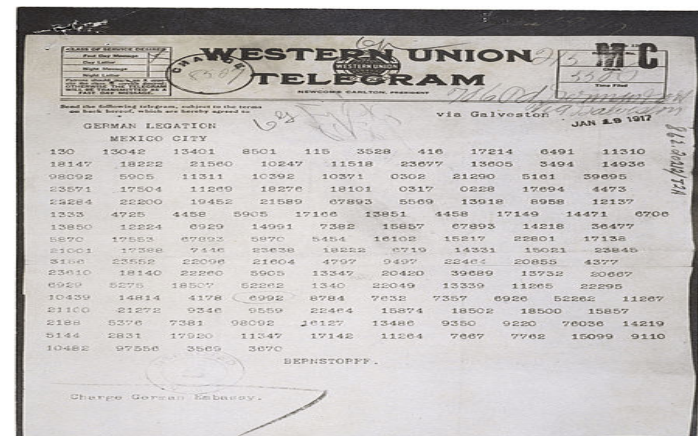 CLASS OF SERVICE DESIRED
Fast Day Message
Day Letter
Night Message
Night Letter
WESTERN UNION
WESTERN UNION
TELEGRAM
NEWCOMB CARLTON, PRESIDENT
Send the following telegram, subject to the terms
on back hereof, which are hereby agreed to
via Galveston
JAN 19 1917
GERMAN LEGATION
MEXICO CITY
130 13042 13401 8501 115 3528 416 17214 6491 11310
18147 18222 21560 10247 11518 23677 13605 3494 14936
98092 5905 11311 10392 10371 0302 21290 5161 39695
23571 17504 11269 18276 18101 0317 0228 17694 4473
22284 22200 19452 21589 67893 5569 13918 8958 12137
1333 4725 4458 5905 17166 13851 4458 17149 14471 6706
13850 12224 6929 14991 7382 15857 67893 14218 36477
5870 17553 67893 5870 5454 16102 15217 22801 17138
21001 17388 7446 23638 18222 6719 14331 15021 23845
3156 23552 22096 21604 4797 9497 22464 20855 4377
23610 18140 22260 5905 13347 20420 39689 13732 20667
6929 5275 18507 52262 1340 22049 13339 11265 22295
10439 14814 4178 6992 8784 7632 7357 6926 52262 11267
21100 21272 9346 9559 22464 15874 18502 18500 15857
2188 5376 7381 98092 16127 13486 9350 9220 76036 14219
5144 2831 17920 11347 17142 11264 7667 7762 15099 9110
10482 97556 3569 3670
BERNSTORFF.
Charge German Embassy.